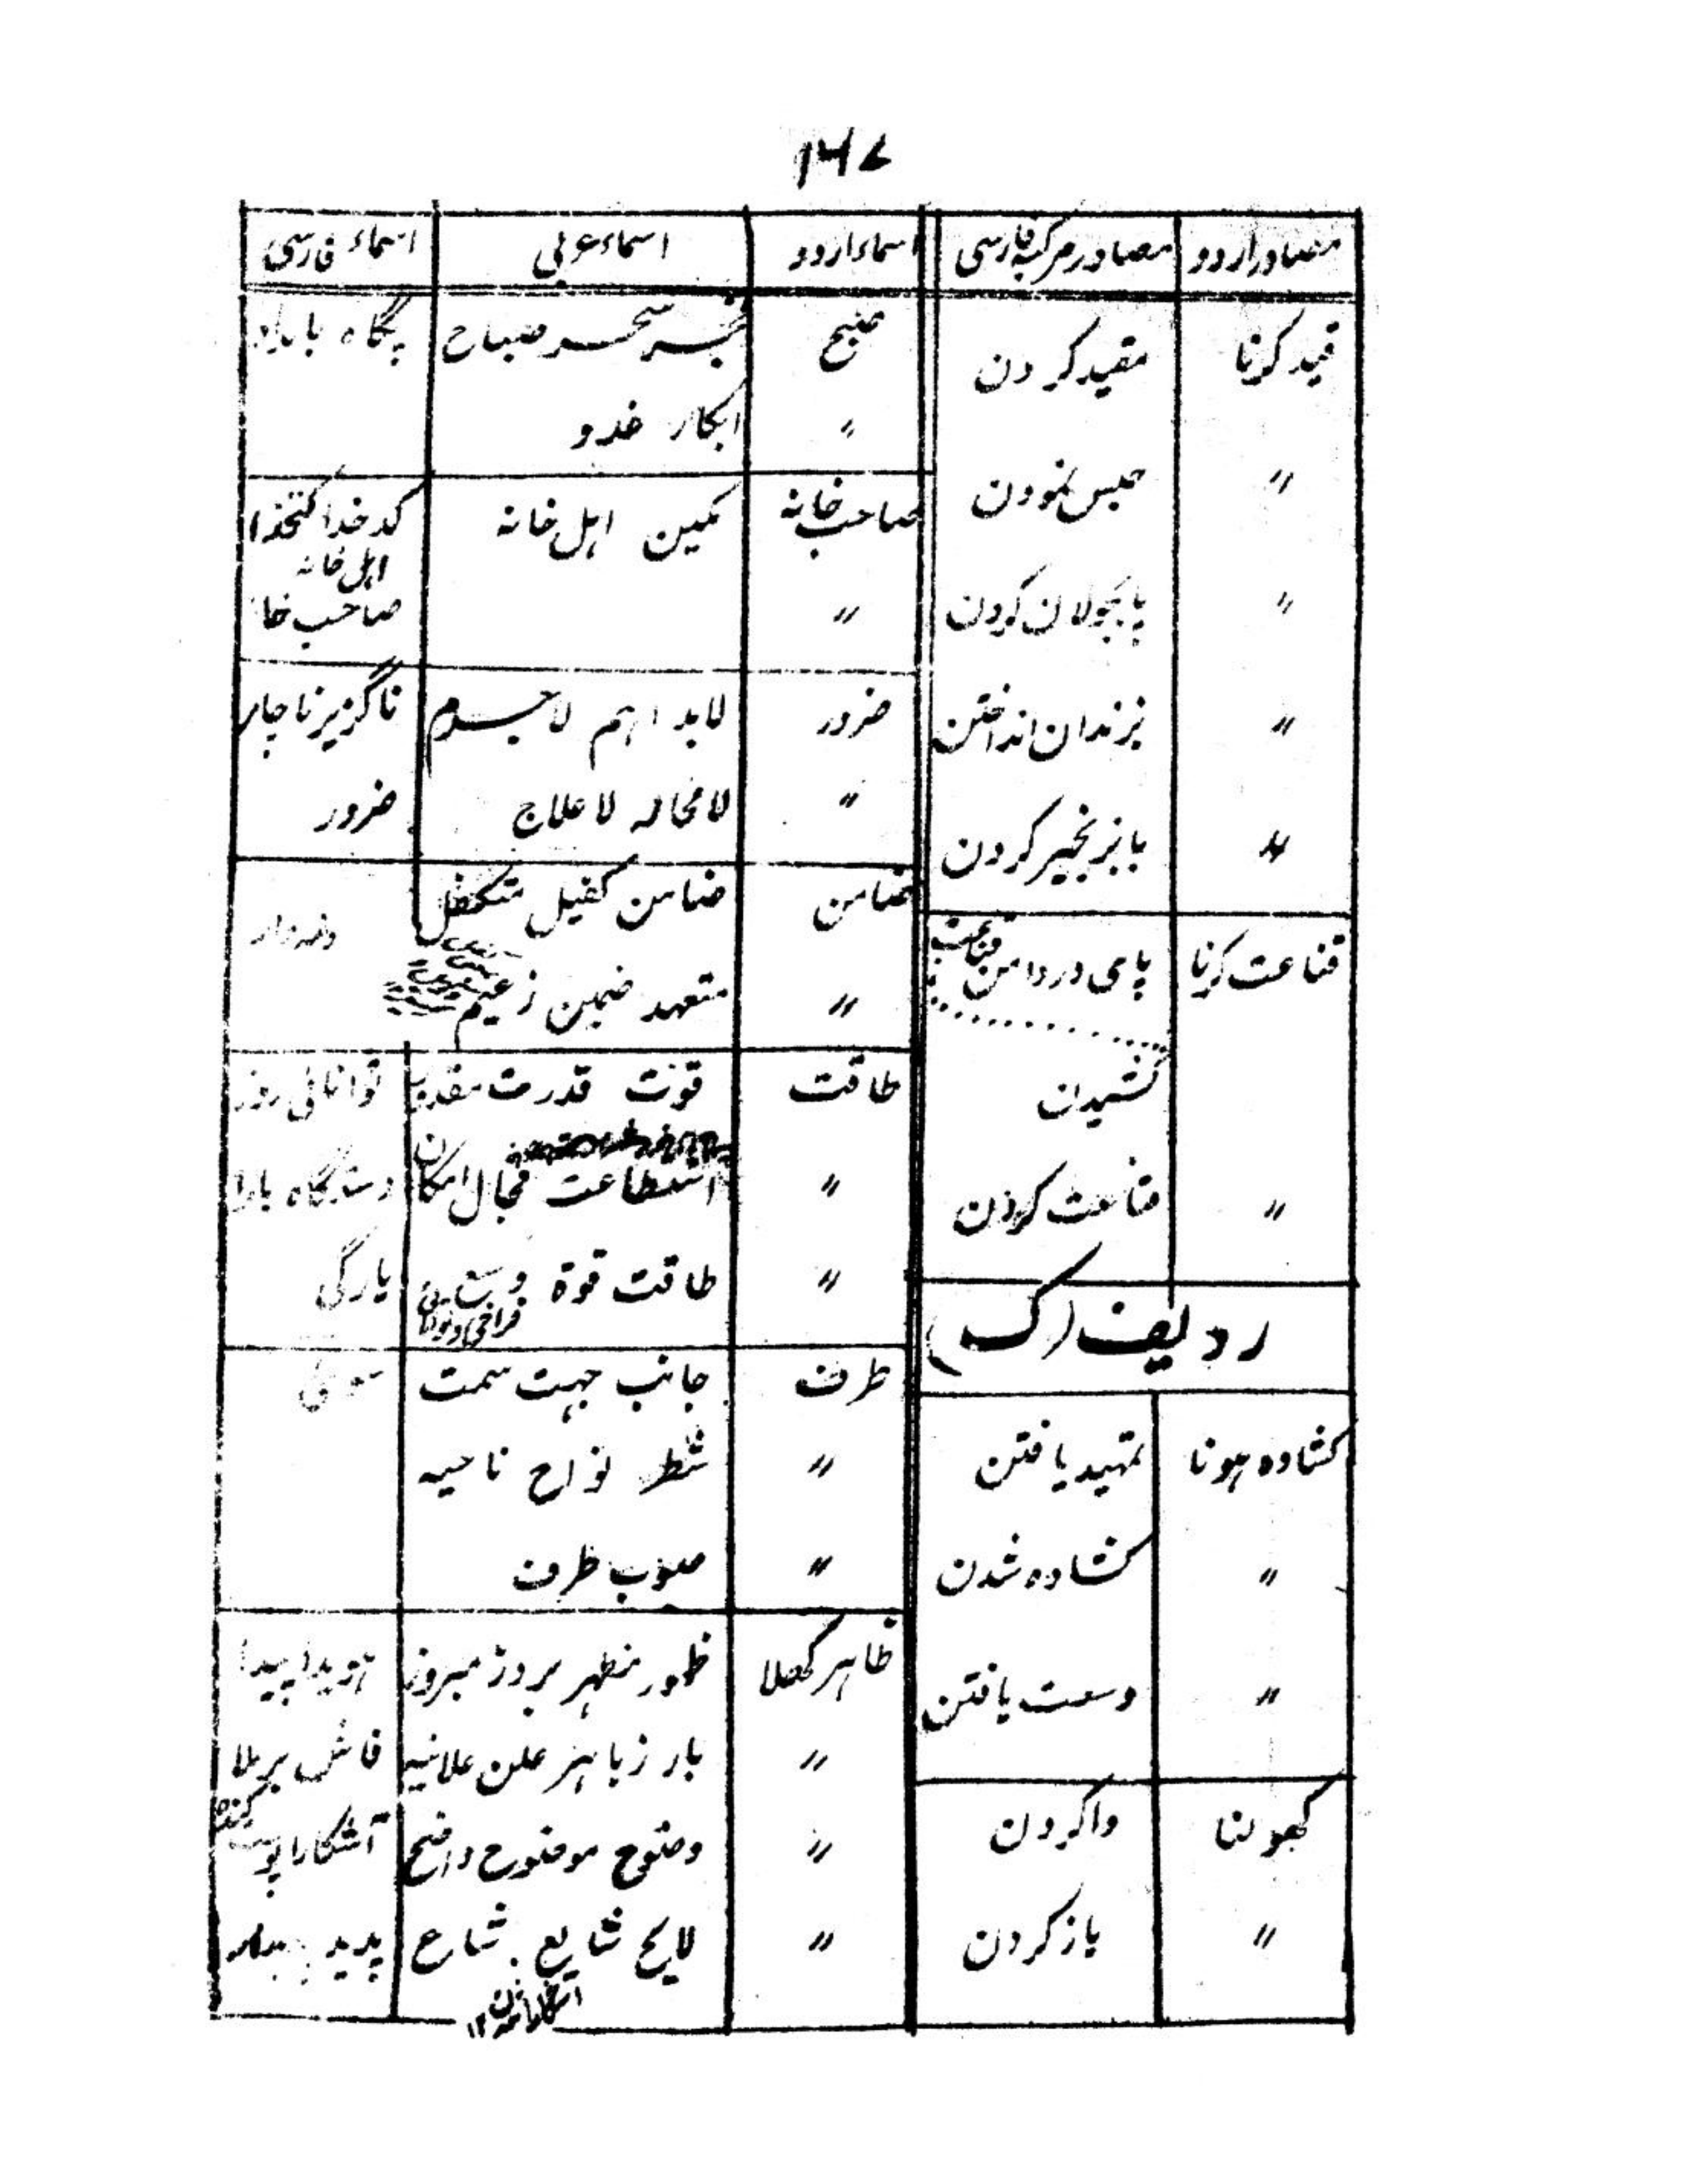 ۱۴۷
مصادر اردو | مصادر مرکبہ فارسی | اسماء اردو | اسماء عربی | اسماء فارسی
قید کرنا | مقید کردن
〃 | حبس نمودن
〃 | پابجولان کردن
〃 | بزندان انداختن
〃 | پابزنجیر کردن
قناعت کرنا | پای در دامن قناعت
کشیدن
〃 | قناعت کردن
ردیف (ک)
کشادہ ہونا | تمہید یافتن
〃 | کشادہ شدن
〃 | وسعت یافتن
کھولنا | واکردن
〃 | بازکردن
صبح | فجر سحر صباح | پگاہ بامداد
〃 | ابکار غدو
صاحب خانہ | مکین اہل خانہ | کدخدا کتخدا
اہل خانہ
〃 | صاحب خانہ
ضرور | لابد اہم لاجرم | ناگزیر ناچار
〃 | لامحالہ لاعلاج | ضرور
ضامن | ضامن کفیل متکفل | ذمہ دار
〃 | متعہد ضمین زعیم
طاقت | قوت قدرت مقدرت | توانائی زور
〃 | استطاعت مجال امکان | دستگاہ یارا
〃 | طاقت قوۃ وسع | یارگی
فراخی و توانائی
طرف | جانب جہت سمت | سوئی
〃 | شطر نواح ناحیہ
〃 | صوب طرف
ظاہر کھلا | ظہور مظہر بروز مبروز | ہویدا پیدا
〃 | بارز باہر علن علانیہ | فاش برملا
〃 | وضوح موضوح واضح | آشکارا پوست کندہ
〃 | لایح شایع شارع | پدید